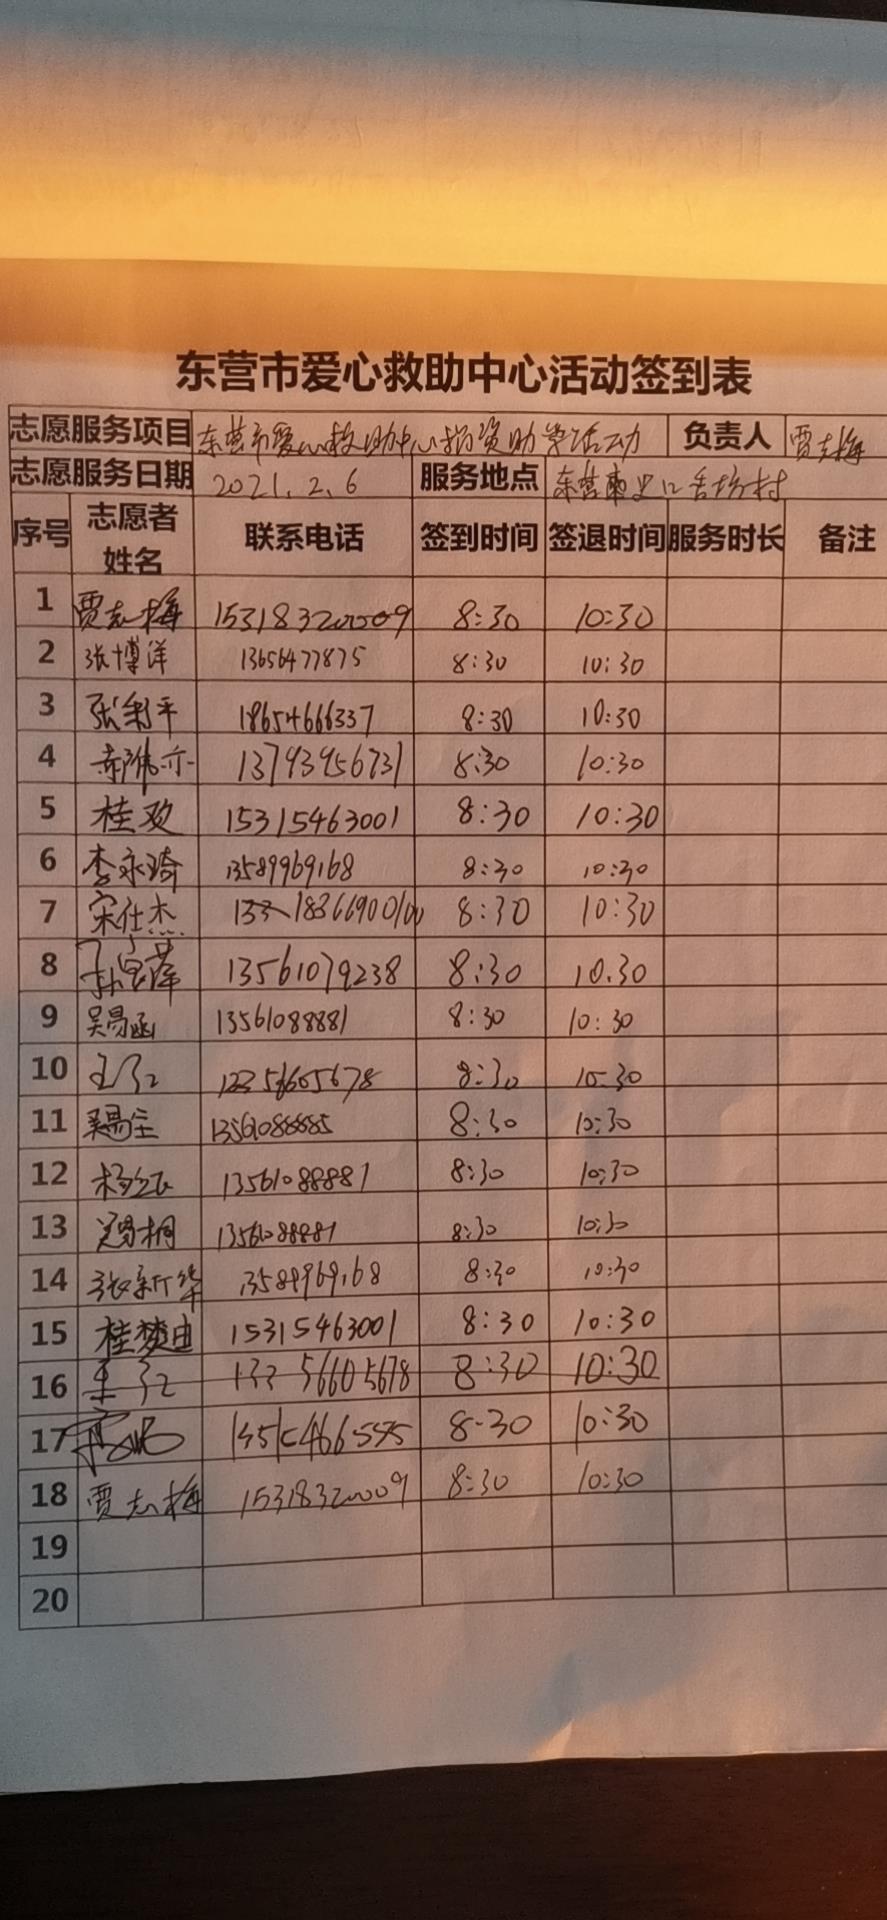 东营市爱心救助中心活动签到表
志愿服务项目 东营市爱心救助中心捐资助学活动 负责人 贾志梅
志愿服务日期 2021.2.6 服务地点 东营 史口 村
序号 志愿者姓名 联系电话 签到时间 签退时间 服务时长 备注
1 贾志梅 15318320009 8:30 10:30
2 张博洋 13656477875 8:30 10:30
3 张利平 18654666337 8:30 10:30
4 13793956731 8:30 10:30
5 桂欢 15315463001 8:30 10:30
6 李永琦 13589969168 8:30 10:30
7 宋仕杰 18366900100 8:30 10:30
8 13561079238 8:30 10.30
9 吴易函 13561088881 8:30 10:30
10 王红 8:30 10:30
11 13561088885 8:30 10:30
12 杨红 13561088881 8:30 10:30
13 吴易桐 13561088881 8:30 10:30
14 张新华 13589969168 8:30 10:30
15 桂梦由 15315463001 8:30 10:30
16 13356605678 8:30 10:30
17 8-30 10:30
18 贾志梅 15318320009 8:30 10:30
19
20